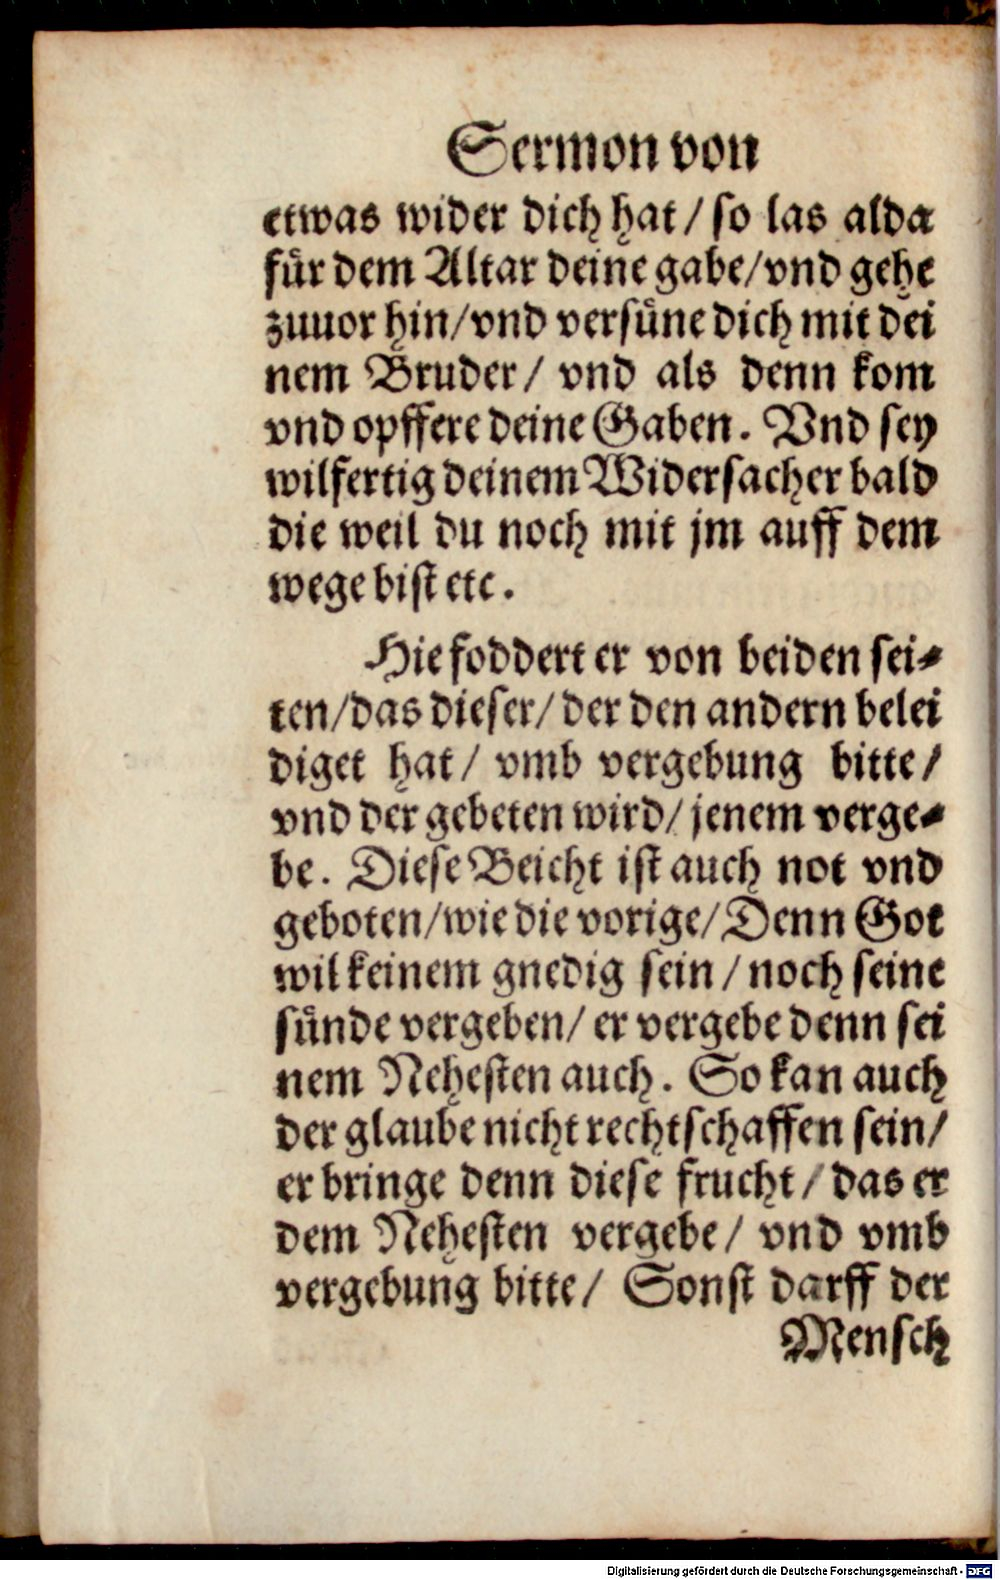 Sermon von
etwas wider dich hat / so las alda
für dem Altar deine gabe / vnd gehe
zuuor hin / vnd versüne dich mit dei
nem Bruder / vnd als denn kom
vnd opffere deine Gaben. Vnd sey
wilfertig deinem Widersacher bald
die weil du noch mit jm auff dem
wege bist etc.
Hie foddert er von beiden sei⸗
ten / das dieser / der den andern belei
diget hat / vmb vergebung bitte /
vnd der gebeten wird / jenem verge⸗
be. Diese Beicht ist auch not vnd
geboten / wie die vorige / Denn Got
wil keinem gnedig sein / noch seine
sünde vergeben / er vergebe denn sei
nem Nehesten auch. So kan auch
der glaube nicht rechtschaffen sein /
er bringe denn diese frucht / das er
dem Nehesten vergebe / vnd vmb
vergebung bitte / Sonst darff der
Mensch
Digitalisierung gefördert durch die Deutsche Forschungsgemeinschaft - DFG